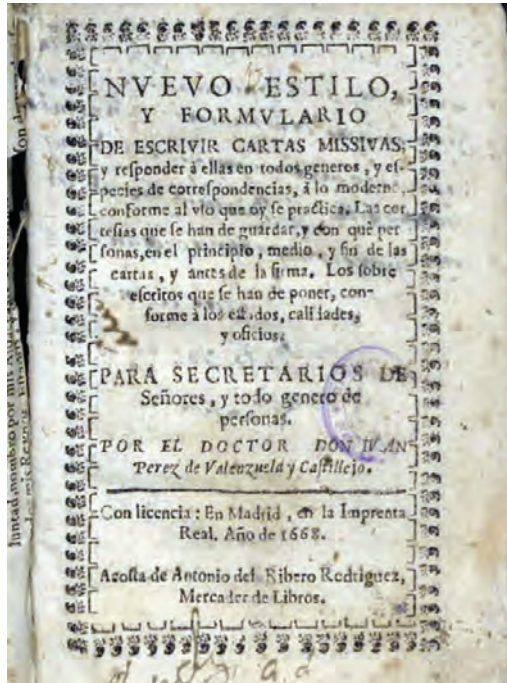 NVEVO ESTILO,
Y FORMVLARIO
DE ESCRIVIR CARTAS MISSIVAS,
y responder à ellas en todos generos, y es-
pecies de correspondencias, à lo moderno,
conforme al vso que oy se practica. Las cor
tesias que se han de guardar, y con què per
sonas, en el principio, medio, y fin de las
cartas, y antes de la firma. Los sobre
escritos que se han de poner, con-
forme à los estados, calidades,
y oficios.
PARA SECRETARIOS DE
Señores, y todo genero de
personas.
POR EL DOCTOR DON IVAN
Perez de Valenzuela y Castillejo.
Con licencia: En Madrid, en la Imprenta
Real. Año de 1668.
Acosta de Antonio del Ribero Rodriguez,
Mercader de Libros.